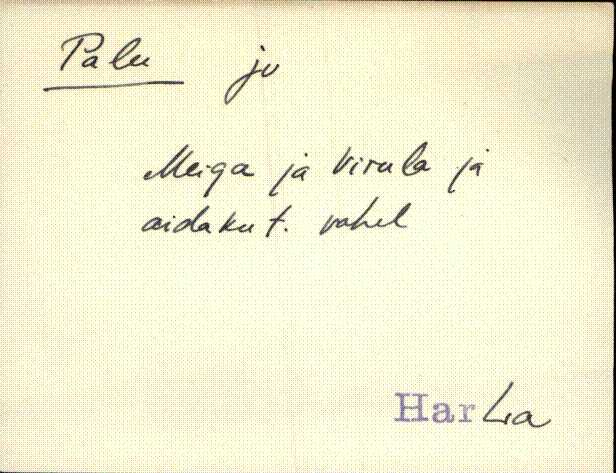 Palu ju
Meiga ja Virula ja
aidaku t. vahel
Har La